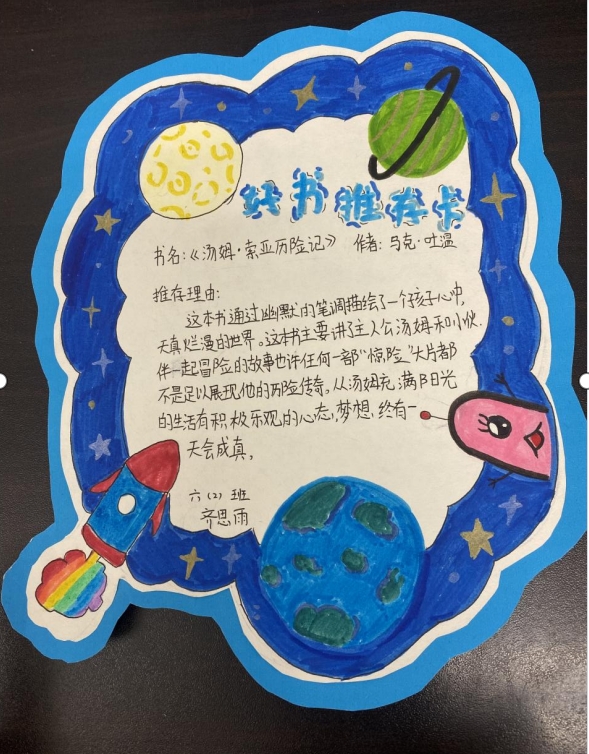 好书推荐卡
书名:《汤姆·索亚历险记》 作者: 马克·吐温
推荐理由:
这本书通过幽默的笔调描绘了一个孩子心中
天真烂漫的世界。这本书主要讲了主人公汤姆和小伙
伴一起冒险的故事也许任何一部“惊险”大片都
不是足以展现他的历险传奇。从汤姆充满阳光
的生活有积极乐观的心态,梦想,终有一
天会成真。
六(2)班
齐思雨